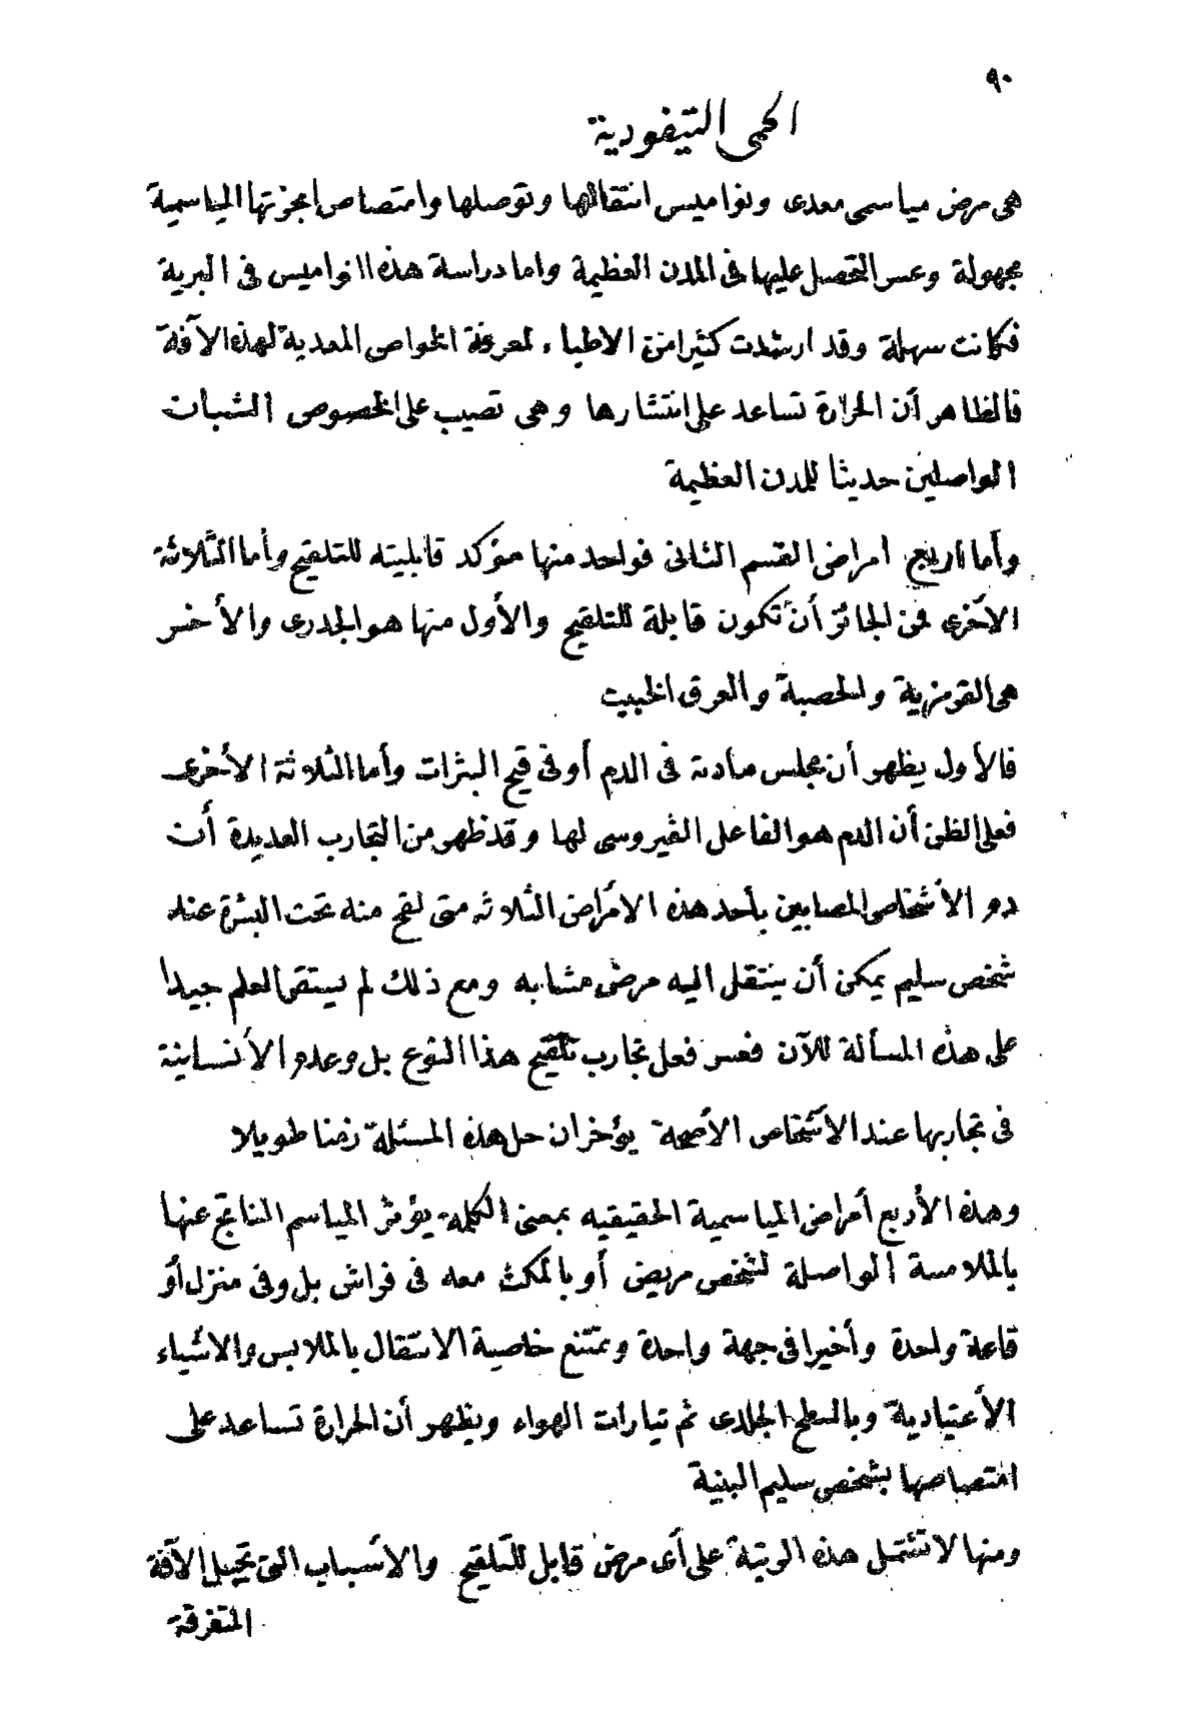 ٩٠
الحمى التيفودية
هى مرض مياسمى معدى ونواميس انتقالها وتوصلها وامتصاص ابجزتها المياسمية
مجهولة وعسر التحصل عليها فى المدن العظيمة واما دراسة هذه النواميس فى البرية
فكانت سهلة وقد ارشدت كثيرا من الاطباء لمعرفة الخواص المعدية لهذه الآفة
فالظاهر أن الحرارة تساعد على انتشارها وهى تصيب على الخصوص الشبان
الواصلين حديثا للمدن العظيمة
وأما أربع امراض القسم الثانى فواحد منها مؤكد قابليته للتلقيح وأما الثلاثة
الأخرى فمن الجائز أن تكون قابلة للتلقيح والأول منها هو الجدرى والأخر
هى القرمزية والحصبة والعرق الخبيث
فالأول يظهر أن مجلس مادته فى الدم أو فى قيح البثرات وأما الثلاثة الأخرى
فعلى الظن أن الدم هو الفاعل الفيروسى لها وقد ظهر من التجارب العديدة أن
دم الأشخاص المصابين بأحد هذه الأمراض الثلاثه متى لقح منه تحت البشرة عند
شخص سليم يمكن أن ينتقل اليه مرض مشابه ومع ذلك لم يستقر العلم جيدا
على هذه المسألة للآن فعسر فعل تجارب تلقيح هذا النوع بل وعدم الأنسانية
فى تجاربها عند الأشخاص الأصحة يؤخران حل هذه المسئلة زمنا طويلا
وهذه الأربع أمراض المياسمية الحقيقيه بمعنى الكلمة يؤثر المياسم الناتج عنها
بالملامسة الواصلة لشخص مريض أو بالمكث معه فى فراش بل وفى منزل أو
قاعة واحدة وأخيرا فى جهة واحدة وتمتنع خاصية الانتقال بالملابس والاشياء
الأعتيادية وبالسطح الجلدى ثم تيارات الهواء ويظهر أن الحرارة تساعد على
امتصاصها بشخص سليم البنية
ومنها لا تشتمل هذه الرتبة على أى مرض قابل للتلقيح والأسباب التى تحيل الآفة
المتفرقة